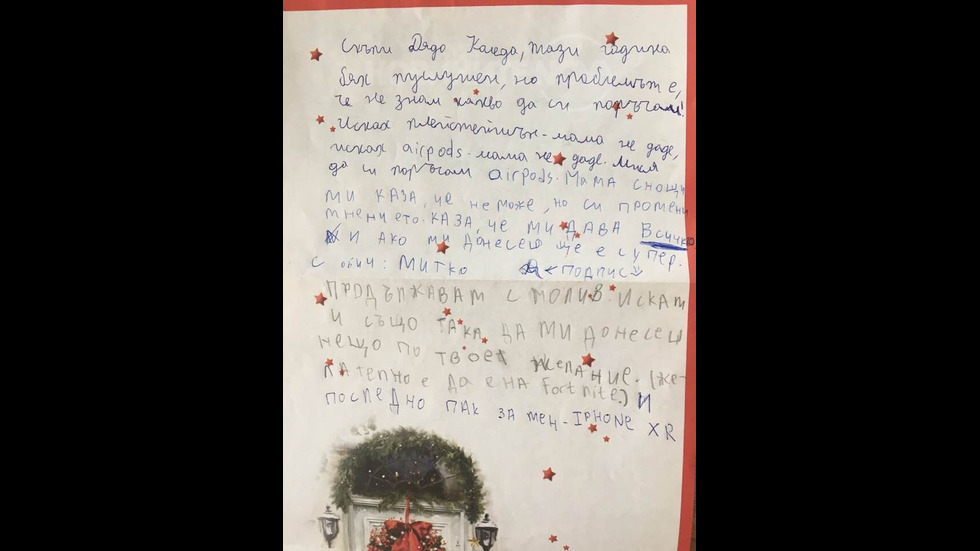 Скъпи Дядо Коледа, тази година
бях пуслушен, но проблемът е,
че не знам какво да си поръчам!
Исках плейстейшън-мама не даде,
исках airpods-мама не даде. Мисля
да си поръчам airpods. Мама снощи
ми каза, че не може, но си промени
мнението. каза, че ми дава всичко
И ако ми донесеш ще е супер.
с обич: Митко подпис
ПРОДЪЛЖАВАМ С МОЛИВ. ИСКАМ
И СЪЩО ТАКА, ДА МИ ДОНЕСЕШ
НЕЩО ПО ТВОЕ ЖЕЛАНИЕ. (ЖЕ-
ЛАТЕЛНО Е ДА Е НА Fortnite.) И
ПОСЛЕДНО ПАК ЗА МЕН - IPHONE XR